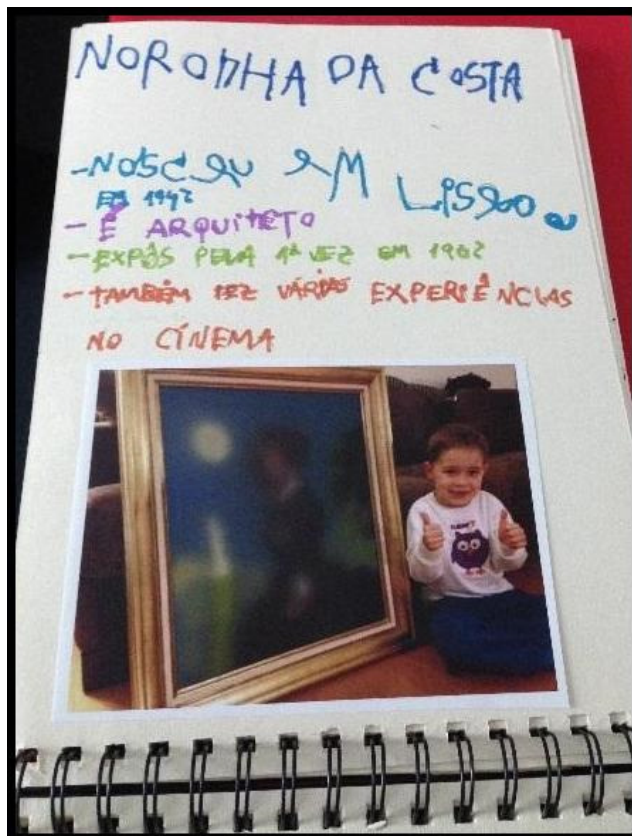 NORONHA DA COSTA
-NASCEU EM LISBOA
EM 1942
- É ARQUITETO
-EXPÔS PELA 1ª VEZ EM 1962
-TAMBÉM FEZ VÁRIAS EXPERIÊNCIAS
NO CINEMA